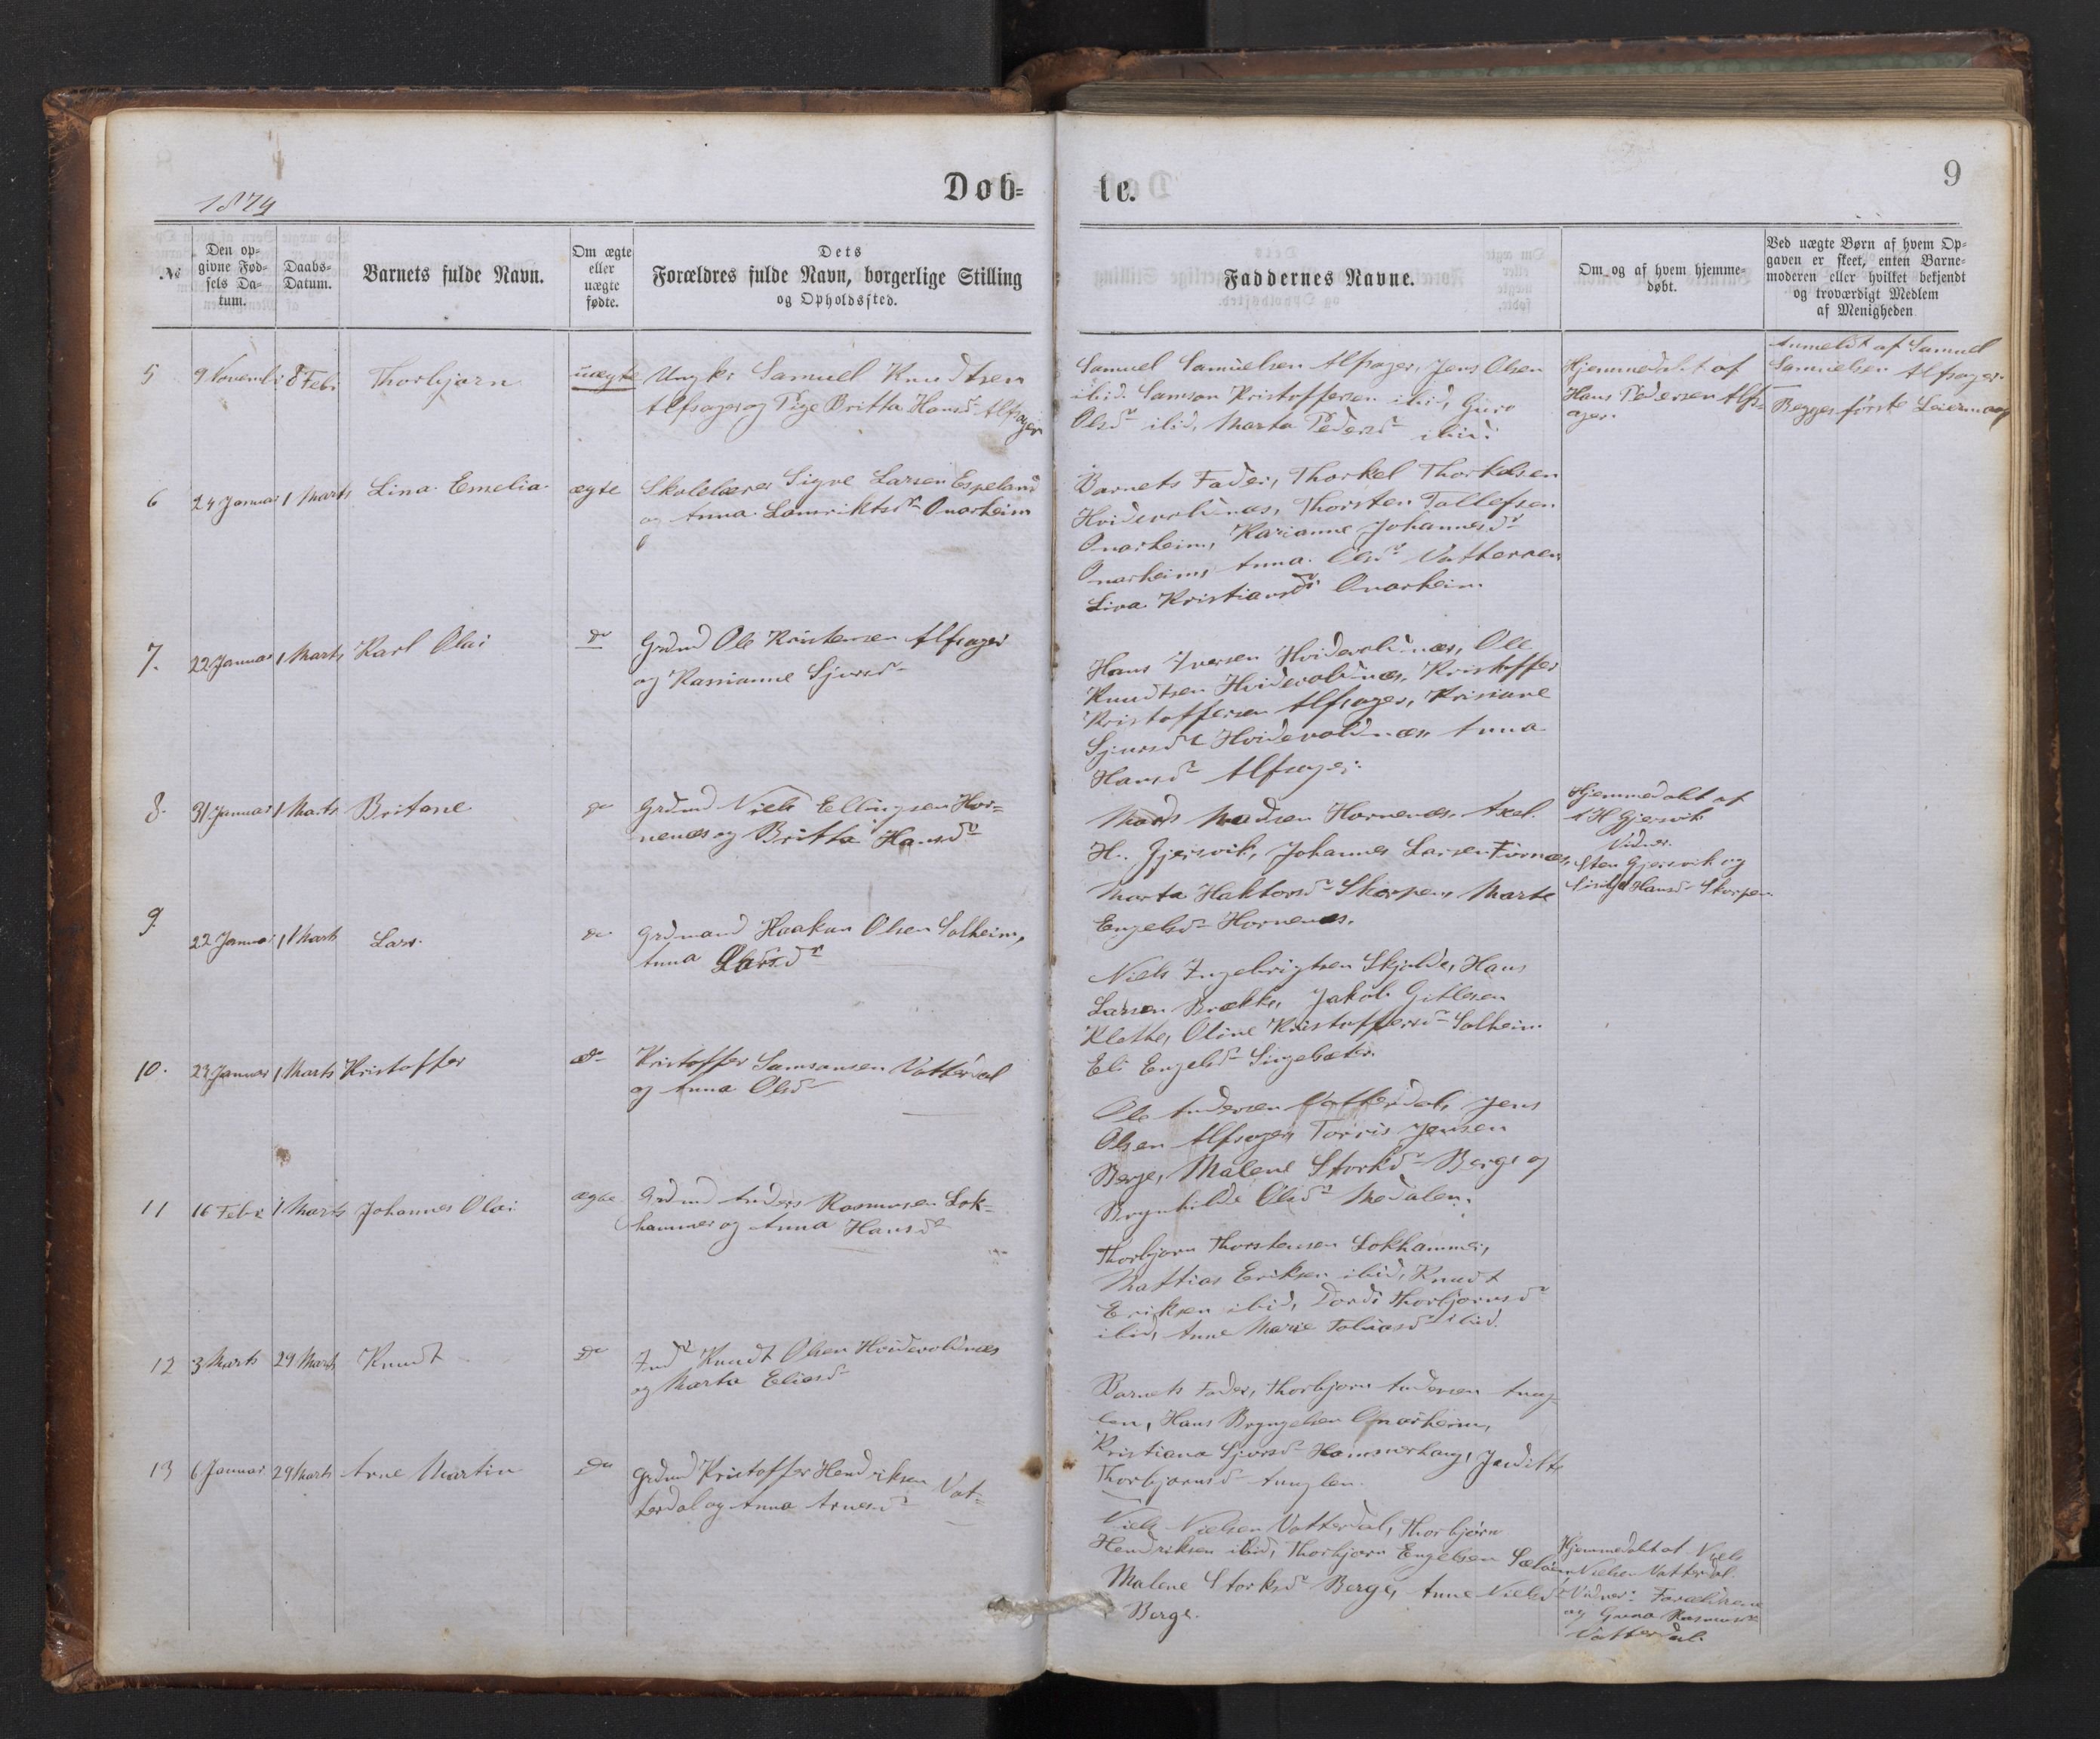 1874
Døb-
te.
9
№
Den op-
givne Fød-
sels Da-
tum.
Daabs-
Datum.
Barnets fulde Navn.
Om ægte
eller
uægte
fødte.
Dets
Forældres fulde Navn, borgerlige Stilling
og Opholdssted.
Faddernes Navne.
Om og af hvem hjemme-
døbt.
Ved uægte Børn af hvem Op-
gaven er skeet, enten Barne-
moderen eller hvilket bekjendt
og troværdigt Medlem
af Menigheden
5 9 Novemb: 8 Feb: Thorbjørn uægte Ungk: Samuel Knudtsen
Alfsager og Pige Britta Hansdr Alfsager
Samuel Samuelsen Alfsager, Jens Olsen
ibid. Samson Kristoffersen ibid, Guro
Olsdr ibid, Marta Pedersdr ibid:
Hjemmedøbt af
Hans Pedersen Alfs-
ager.
Anmeldt af Samuel
Samuelsen Alfsager.
Begges første Leiermaal
6 24 Januar 1 Marts Lina Emelia ægte Skolelærer Sigve Larsen Espeland
og Anna Lamriktsdr Onarheim
Barnets Fader, Thorkel Thorkelsen
Hvidevoldnæs, Thorsten Tollefsen
Onarheim, Karianne Johannesdr
Onarheim, Anna Olsdr Vatteroen,
Lina Kristiansdr Onarheim
7. 22 Januar 1 Marts Karl Olai do Grdmd Ole Kristensen Alfsager
og Rassianne Sjursdr
Hans Iversen Hvidevoldnæs, Ole
Knudtsen Hvidevoldnæs, Kristoffer
Kristoffersen Alfsager, Krisiane
Sjursdr Hvidevoldnæs Anna
Hansdr Alfsager.
8. 31 Januar 1 Marts Britane do Grdmd Niels Ellingsen Hor-
nenæs og Britta Hansdr
Mads Madsen Hornenæs, Axel
H. Gjersvik, Johannes Larsen Furnæs,
Marta Haktorsdr Skorpen, Marta
Engelsdr Hornenæs.
Hjemmedøbt af
A H Gjersvik
Vidner.
Sten Gjersvik og
Hansdr Skorpen
9. 22 Januar 1 Marts Lars do Grdmand Haakon Olsen Solheim,
Anna Larsdr
Niels Ingebrigtsen Skjelde, Hans
Larsen Brække, Jakob Gitlesen
Klethe, Oline Kristoffersdr Solheim
Eli Engelsdr Singelsæter.
10. 23 Januar 1 Marts Kristoffer do Kristoffer Samsonsen Vatterdal
og Anna Olsdr
Ole Andersen Vatterdal, Jens
Olsen Alfsager, Torris Jensen
Berge, Malene Storksdr Berge og
Brynhilde Olsdr Medalen.
11 16 Febr 1 Marts Johannes Olai ægte Grdmd Anders Rasmusen Lok-
hammer og Anna Hansdr
Thorbjørn Thorstensen Lokhammer,
Mattias Eriksen ibid, Knudt
Eriksen ibid, Dordi Thorbjørnsdr
ibid, Anne Marie Tobiasdr ibid.
12 3 Marts 29 Marts Knudt do Indr Knudt Olsen Hvidevoldnæs
og Marta Eliasdr
Barnets Fader, Thorbjørn Andersen Aung-
len, Hans Brynjelsen Onarheim,
Kristiana Sjursdr Hammerhaug, Jæditte
Thorbjørnsdr Aunglen.
13 6 Januar 29 Marts Arne Martin do Grdmd Kristoffer Hendriksen Vat-
terdal og Anna Arnesdr
Niels Nielsen Vatterdal, Thorbjørn
Hendriksen ibid, Thorbjørn Engelsen
Malene Storksdr Berge, Anne Nielsdr
Berge.
Hjemmedøbt af Niels
Nielsen Vatterdal.
Vidner: Forældrene
og Rasmusdr
Vatterdal.